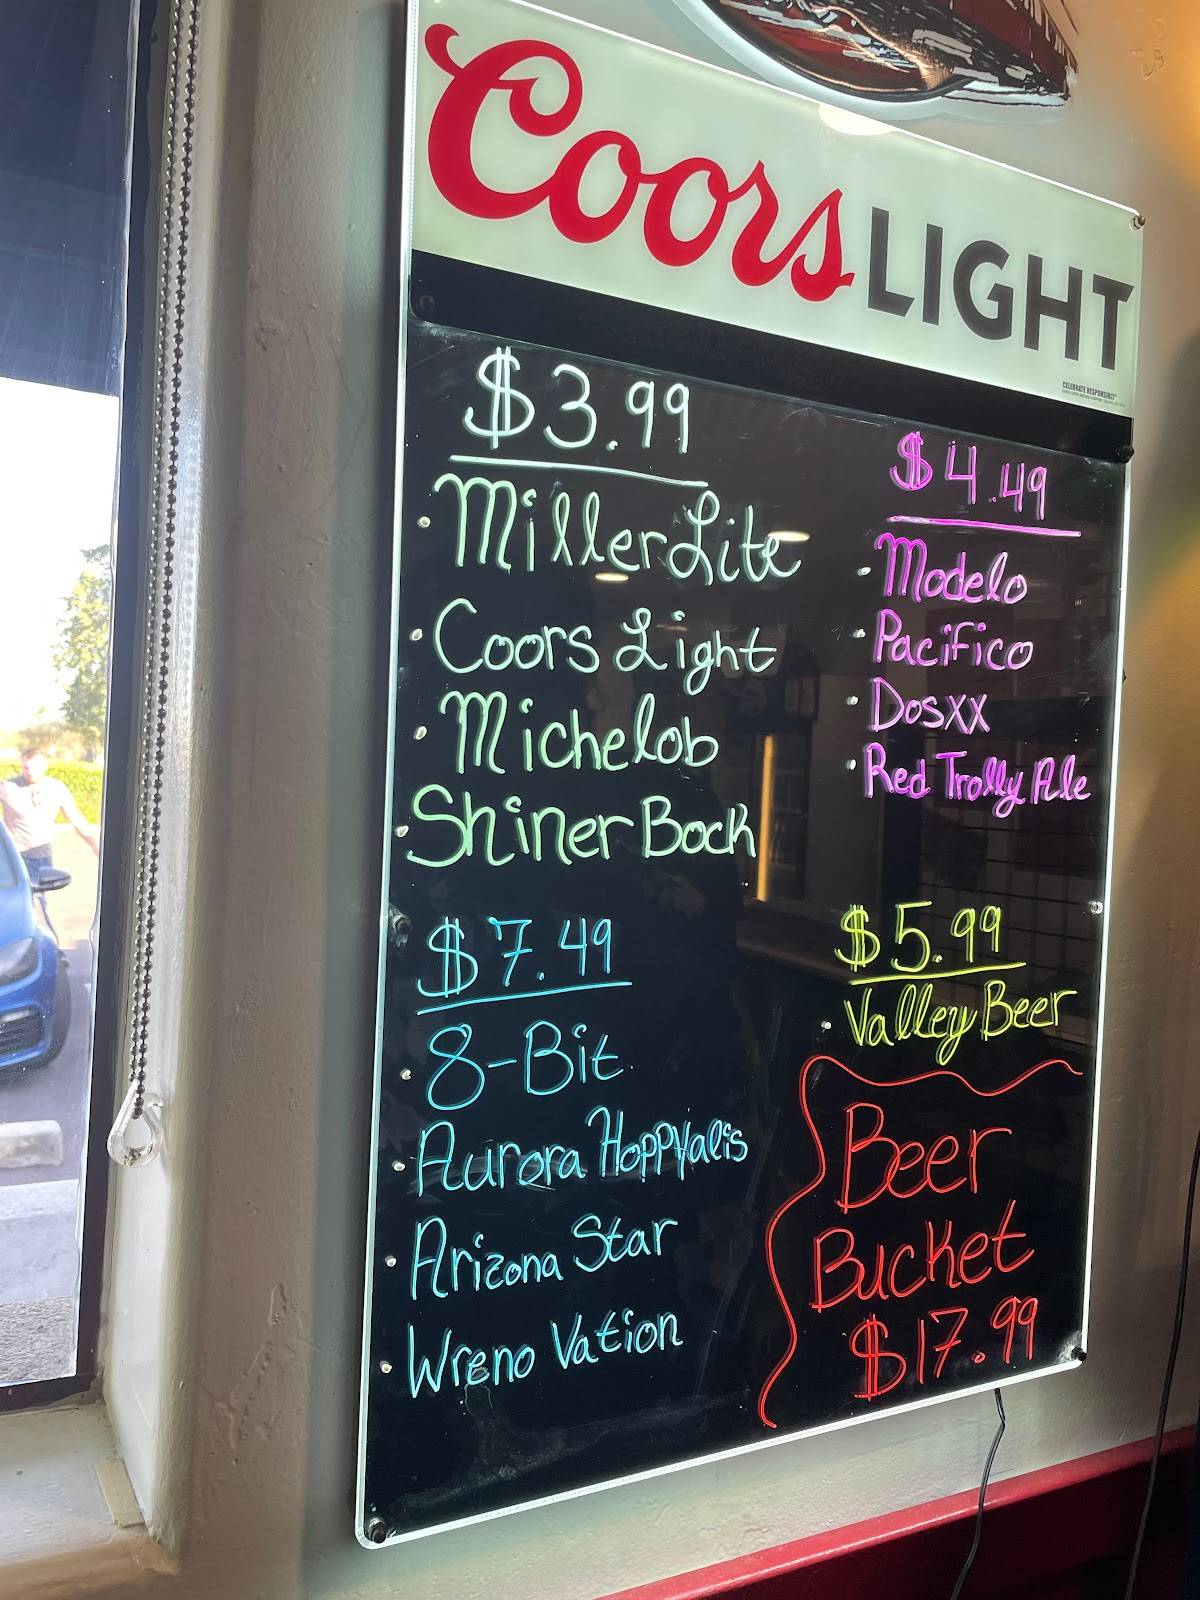 Coors LIGHT
CELEBRATE RESPONSIBLY®
$3.99
· Miller Lite
· Coors Light
· Michelob
· Shiner Bock
$4.49
· Modelo
· Pacifico
· Dosxx
· Red Trolly Ale
$7.49
· 8-Bit
· Aurora Hoppyalis
· Arizona Star
· Wreno Vation
$5.99
· Valley Beer
Beer
Bucket
$17.99